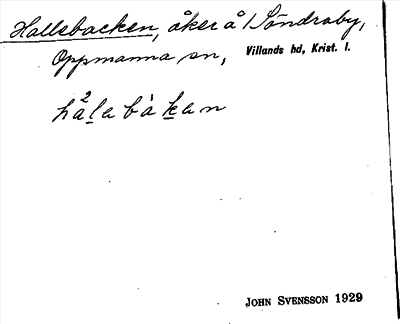 Hallebacken, åker å Söndraby,
Oppmanna sn, Villands hd, Krist. l.
hå²labàkan
JOHN SVENSSON 1929